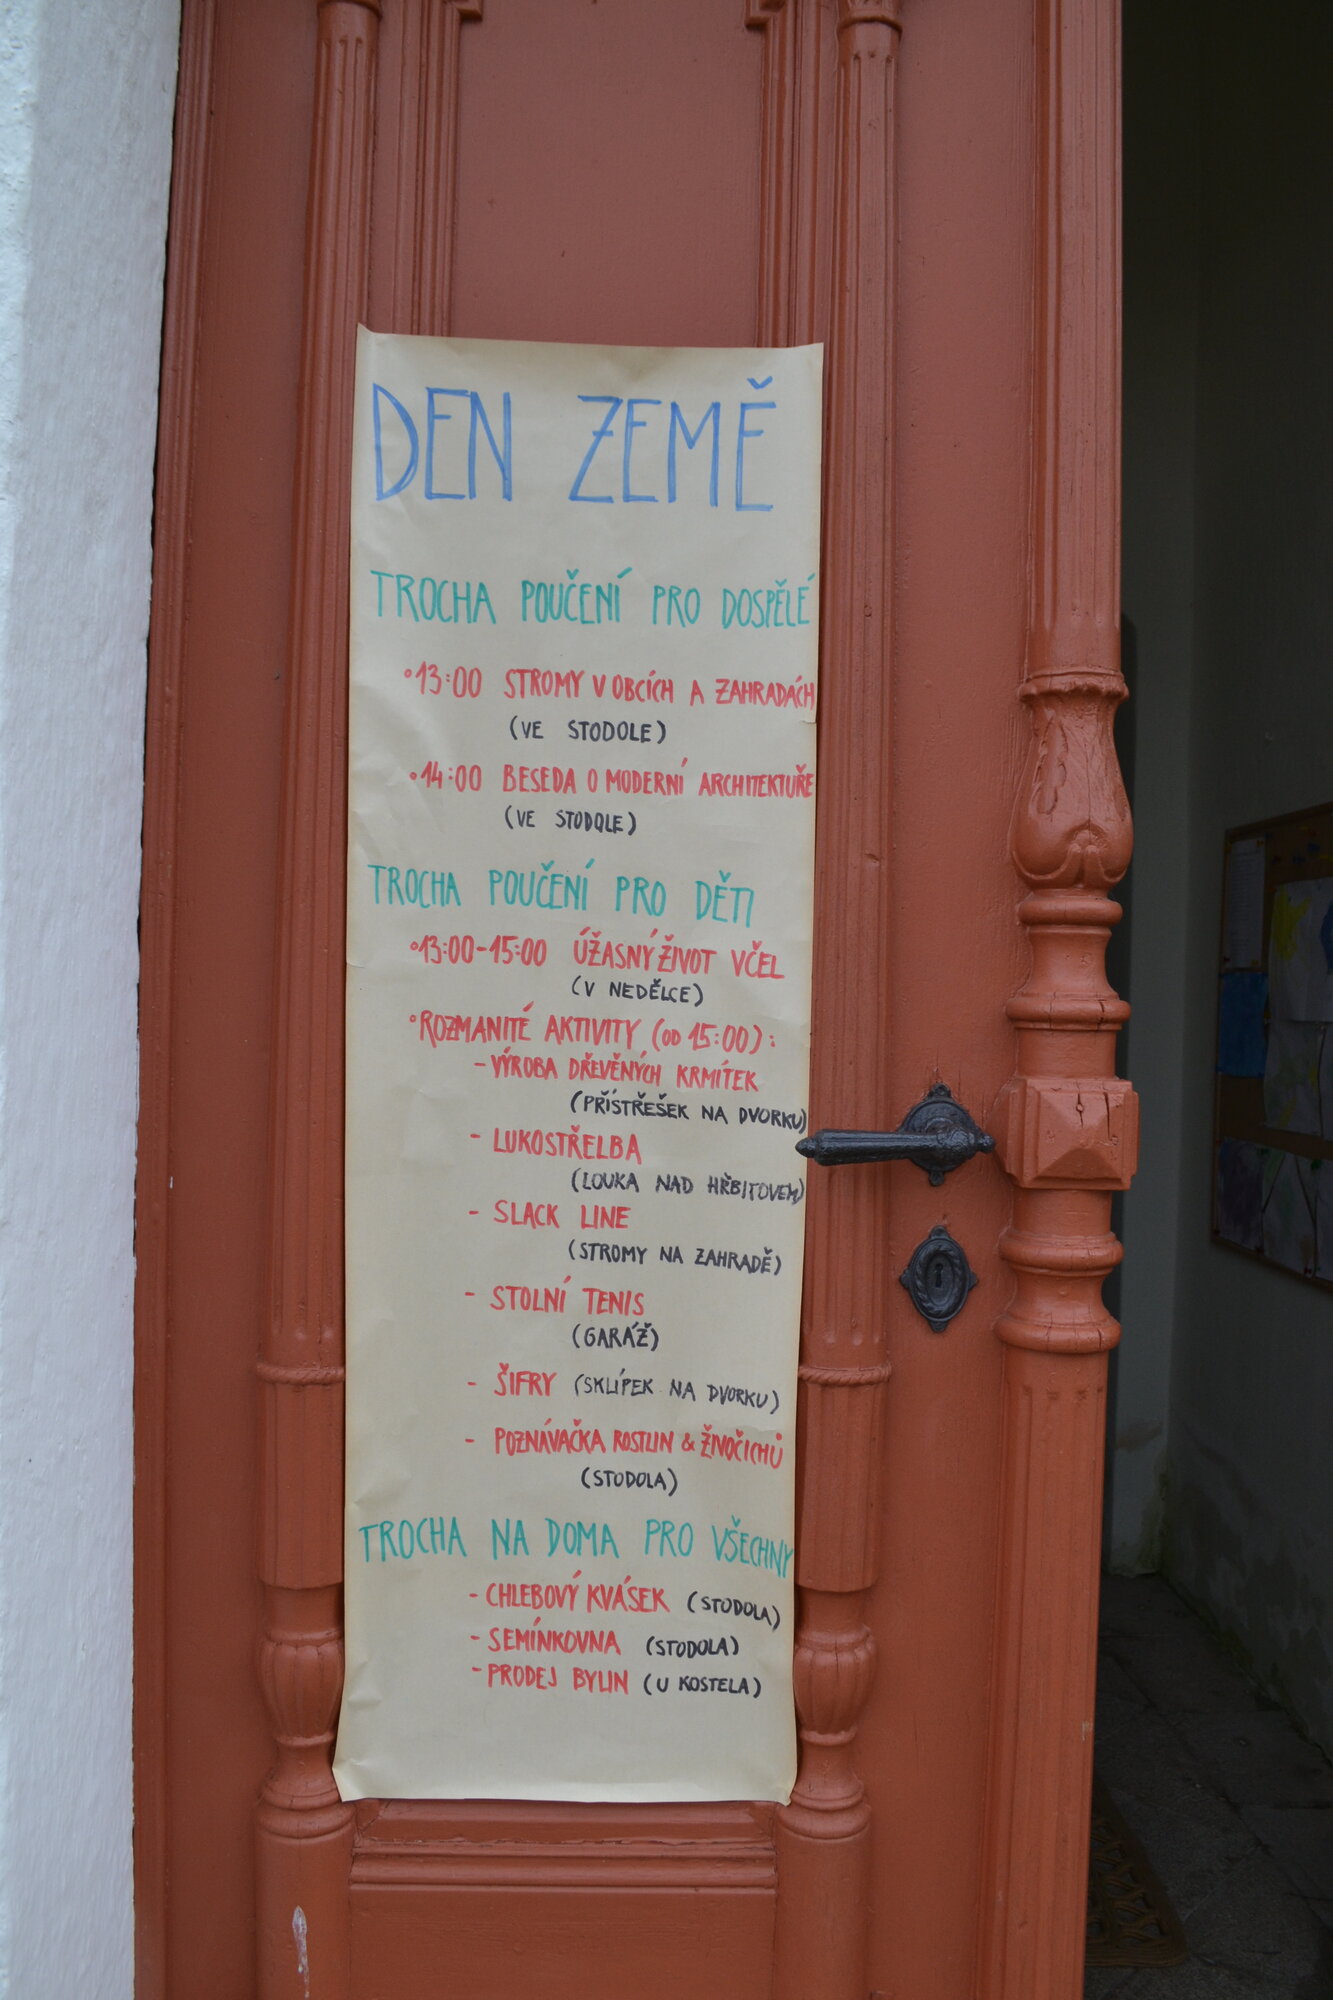 DEN ZEMĚ
TROCHA POUČENÍ PRO DOSPĚLÉ
°13:00 STROMY V OBCÍCH A ZAHRADÁCH
(VE STODOLE)
°14:00 BESEDA O MODERNÍ ARCHITEKTUŘE
(VE STODOLE)
TROCHA POUČENÍ PRO DĚTI
°13:00-15:00 ÚŽASNÝ ŽIVOT VČEL
(V NEDĚLCE)
°ROZMANITÉ AKTIVITY (OD 15:00):
-VÝROBA DŘEVĚNÝCH KRMÍTEK
(PŘÍSTŘEŠEK NA DVORKU)
- LUKOSTŘELBA
(LOUKA NAD HŘBITOVEM)
- SLACK LINE
(STROMY NA ZAHRADĚ)
- STOLNÍ TENIS
(GARÁŽ)
- ŠIFRY (SKLÍPEK NA DVORKU)
- POZNÁVAČKA ROSTLIN & ŽIVOČICHŮ
(STODOLA)
TROCHA NA DOMA PRO VŠECHNY
- CHLEBOVÝ KVÁSEK (STODOLA)
- SEMÍNKOVNA (STODOLA)
- PRODEJ BYLIN (U KOSTELA)